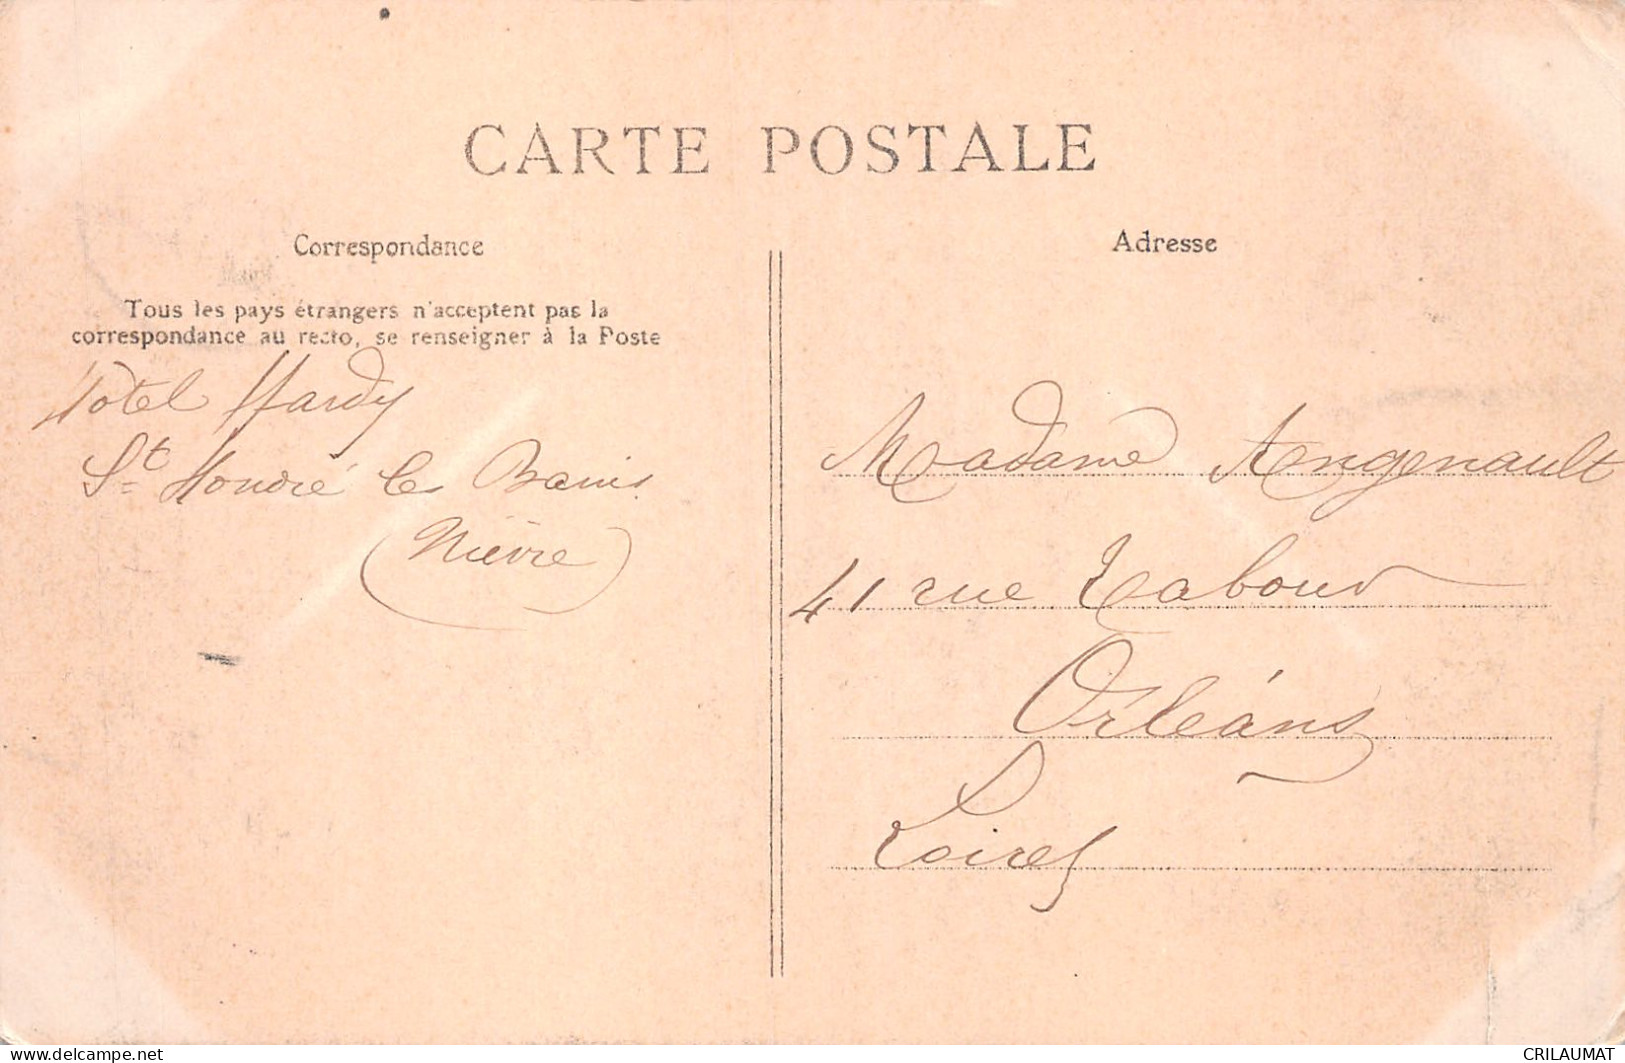 CARTE POSTALE
Correspondance
Tous les pays étrangers n'acceptent pas la
correspondance au recto, se renseigner à la Poste
Hôtel Hardy
St Honoré les Bains
(Nièvre)
Adresse
Madame Angenault
41 rue Tabour
Orléans
Loiret
www.delcampe.net
CRILAUMAT